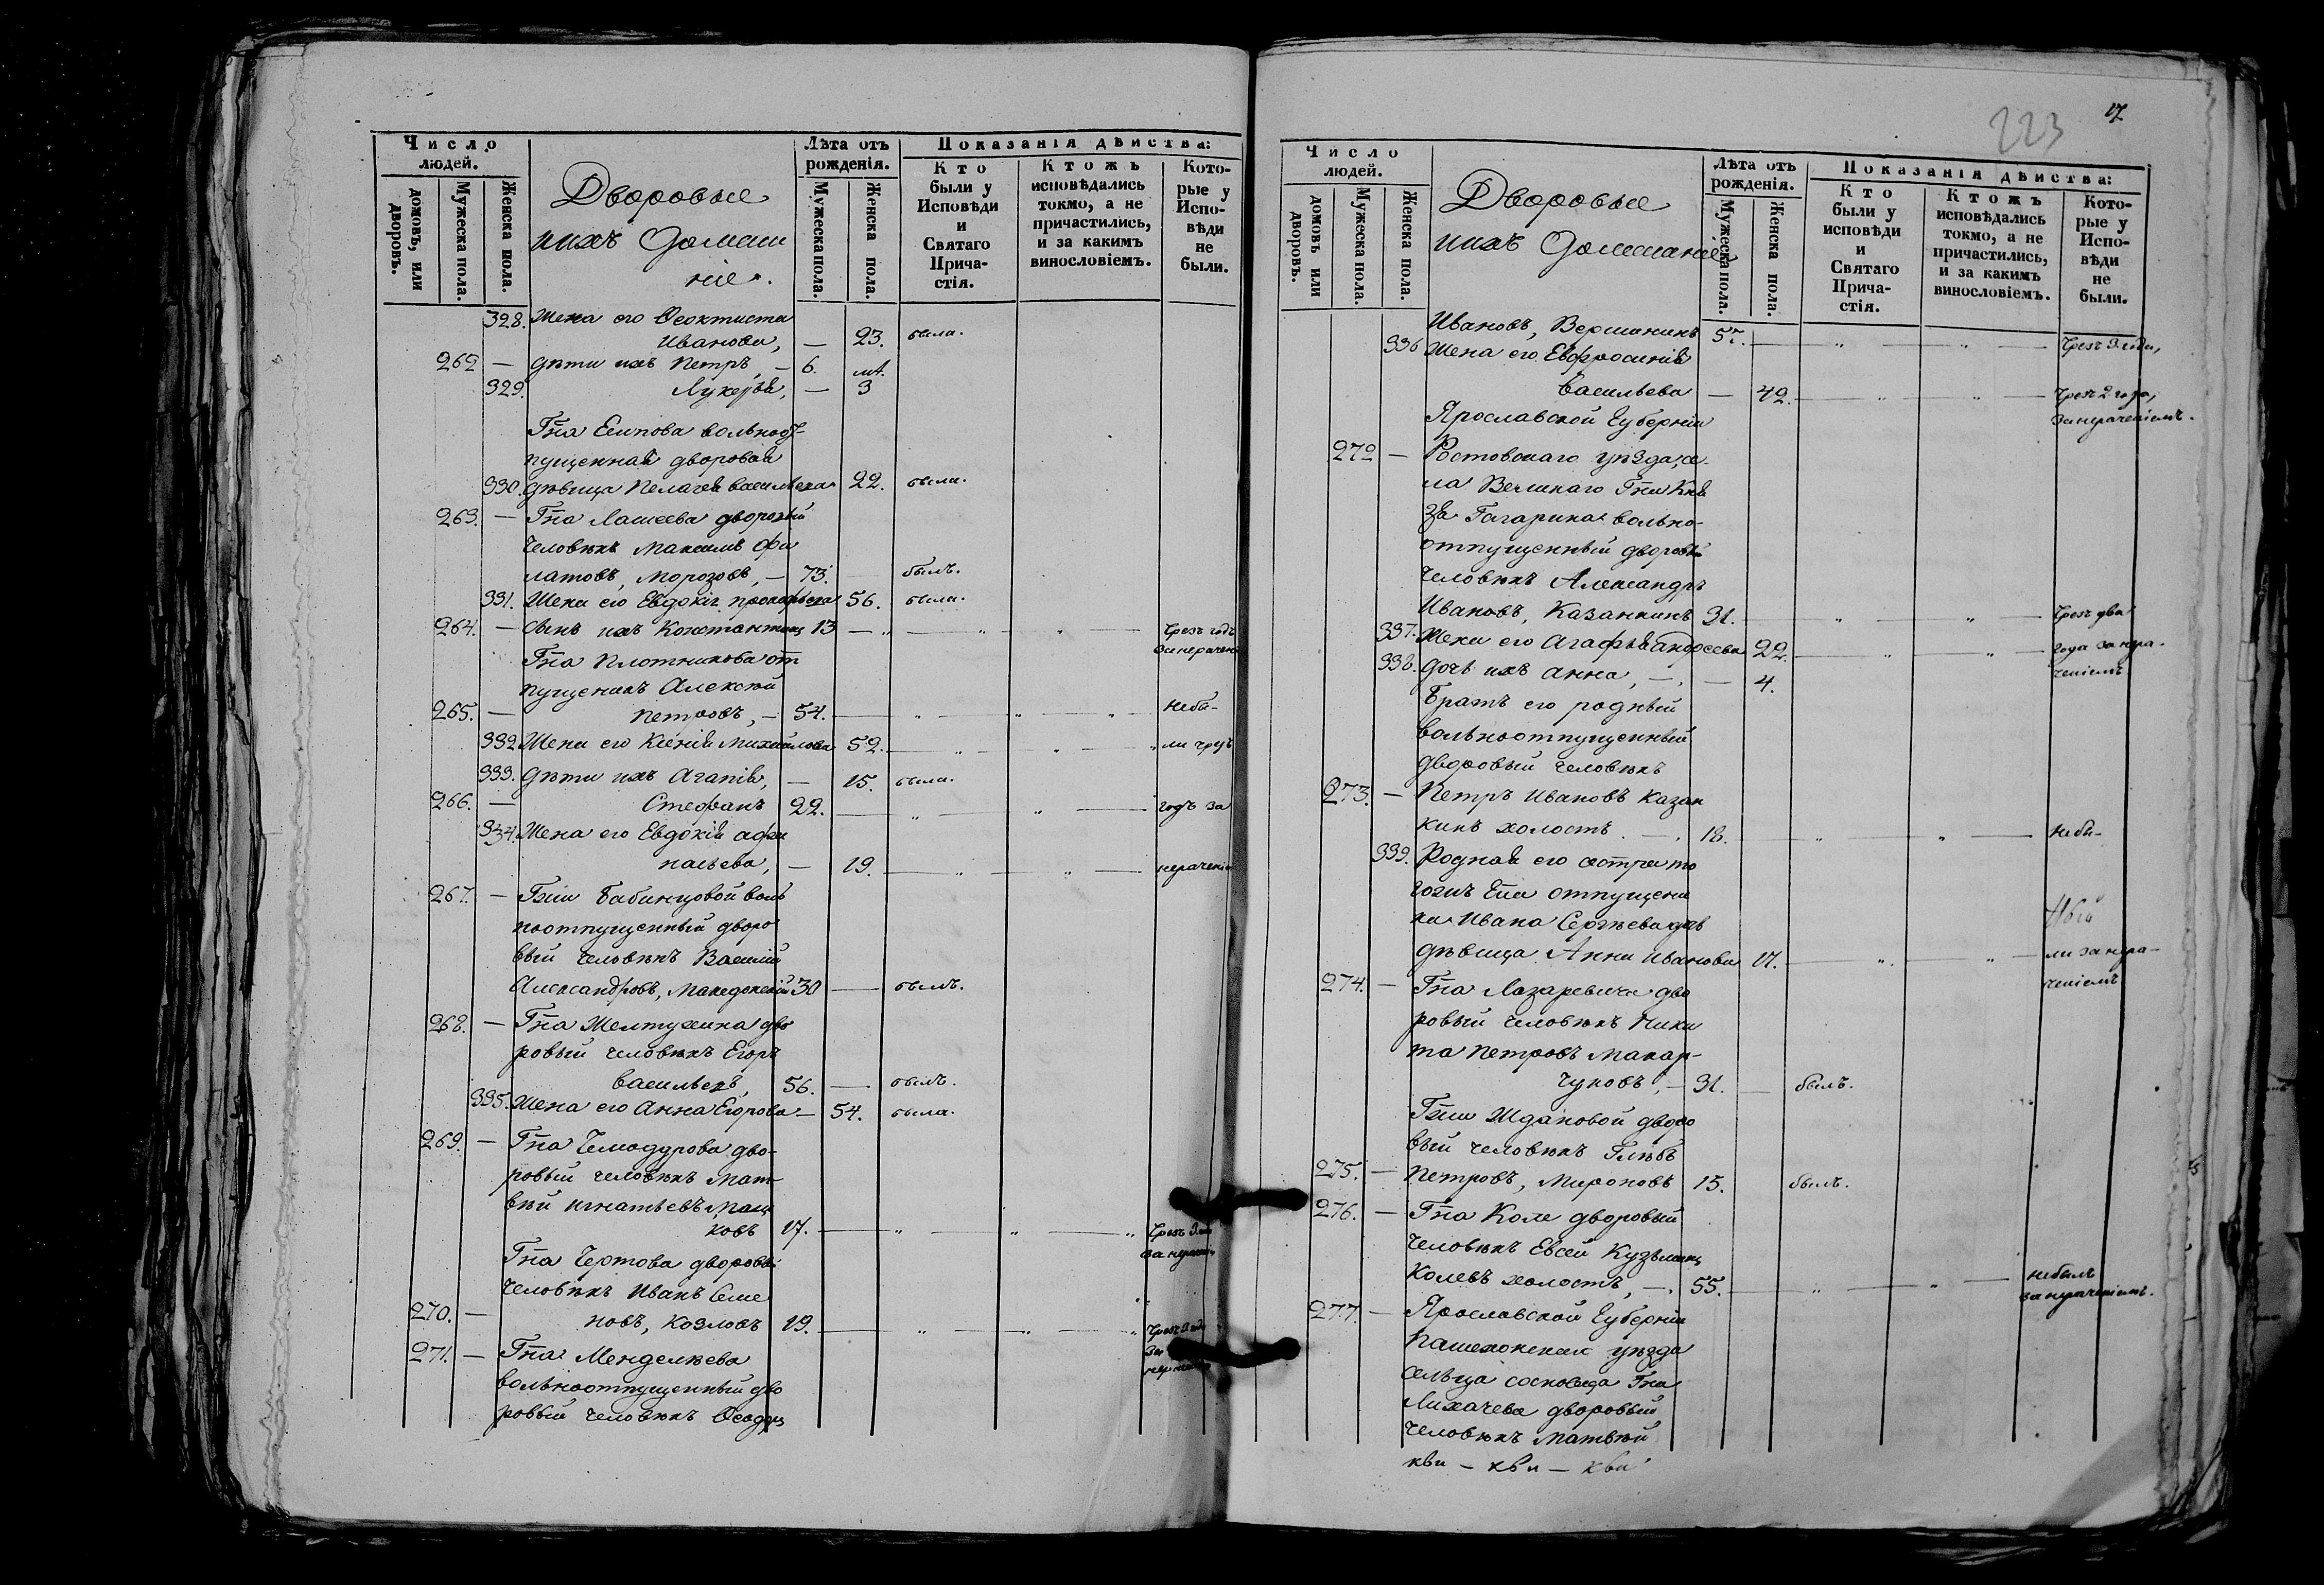 Число людей.
домовъ, или дворовъ.
Мужеска пола.
Женска пола.
Дворовые
ихъ домаш
ніе.
Лѣта отъ рожденія.
Мужеска пола.
Женска пола.
Показанія дѣйства:
Кто были у Исповѣди и Святаго Прича- стія.
Ктожъ исповѣдались токмо, а не причастились, и за какимъ винословіемъ.
Кото- рые у Испо- вѣди не были.
328. Жена его Ѳеоктиста
Иванова, — 23. была.
262 — дѣти ихъ Петръ, — 6.
329. Лукерья, — 3
Гна Есипова вольноот-
пущенная дворовая
330. дѣвица Пелагея Васильева 22. была.
263. — Гна Лашеева дворовый
человѣкъ Максимъ Фи
латовъ, Морозовъ, — 73. былъ.
331. Жена его Евдокія Прокофьева 56. была.
264. — Сынъ ихъ Константинъ 13 — „ — „ — „ — Чрезъ годъ
за нерачен
Гна Плотникова от
пущеникъ Алексѣй
265. — Петровъ, — 54. — „ — „ — „ — Небы-
332 Жена его Ксенія Михайлова 52. — „ — „ — „ ли чрезъ
333. дѣти ихъ Агапія, — 15. была.
266. — Стефанъ 22. — „ — „ — годъ за
334. Жена его Евдокія Афа
насьева, — 19. — „ — „ — нерачені
267. — Гжи Бабинцовой воль
ноотпущенный дворо
вый человѣкъ Василій
Александровъ, Македонскій 30 — былъ.
268. — Гна Желтухина дво
ровый человѣкъ Егоръ
Васильевъ, 56. — былъ.
335. Жена его Анна Егорова — 54. была.
269. — Гна Чемодурова дво-
ровый человѣкъ Мат-
вѣй Игнатьевъ Маш
ковъ 17. — „ — „ — „ Чрезъ 3
за нерачен
Гна Чертова дворовый
человѣкъ Иванъ Семе
270. — новъ, Козловъ 19. — „ — „ — „ Чрезъ
за
271. — Гна Менделѣева
вольноотпущенный дво
ровый человѣкъ Ѳеодоръ
223
17
Число людей.
домовъ или дворовъ.
Мужеска пола.
Женска пола.
Дворовые
ихъ домашніе
Лѣта отъ рожденія.
Мужеска пола.
Женска пола.
Показанія дѣйства:
Кто были у исповѣди и Святаго Прича- стія.
Ктожъ исповѣдались токмо, а не причастились, и за какимъ винословіемъ.
Кото- рые у Испо- вѣди не были.
Ивановъ, Вершининъ 57. — „ — „ — Чрезъ 3 года,
336 Жена его Евфросинія
Васильева — 42. — „ — „ — Чрезъ 2 года,
за нераченіемъ.
Ярославской Губерніи
272 — Ростовскаго уѣзда, се-
ла Великаго Гна Кня
зя Гагарина вольно-
отпущенный дворовый
человѣкъ Александръ
Ивановъ, Казанкинъ 31. — „ — „ — Чрезъ два
337. Жена его Агафья Андреева 22. — „ — „ — года за нера-
338. дочь ихъ Анна, — — 4. ченіемъ
Братъ его родный
вольноотпущенный
дворовый человѣкъ
273. — Петръ Ивановъ Казан
кинъ холостъ. — 18. — „ — „ — небы-
339. Родная его сестра то
гожъ Гна отпущени
ка Ивана Сергѣева дочь
дѣвица Анна Иванова 17. — „ — „ — ли за нера-
ченіемъ
274. — Гна Лазаревича дво
ровый человѣкъ Ники
та Петровъ Макар-
чуковъ, — 31. — былъ.
Гжи Ждановой дворо
вый человѣкъ Глѣбъ
275. — Петровъ, Мироновъ 15. былъ.
276. — Гна Коле дворовый
человѣкъ Евсей Кузьминъ
Колевъ холостъ, — 55. — „ — „ — небылъ
за нераченіемъ.
277. — Ярославской Губерніи
Пашехонскаго уѣзда
сельца Гна
Лихачева дворовый
человѣкъ Матвѣй